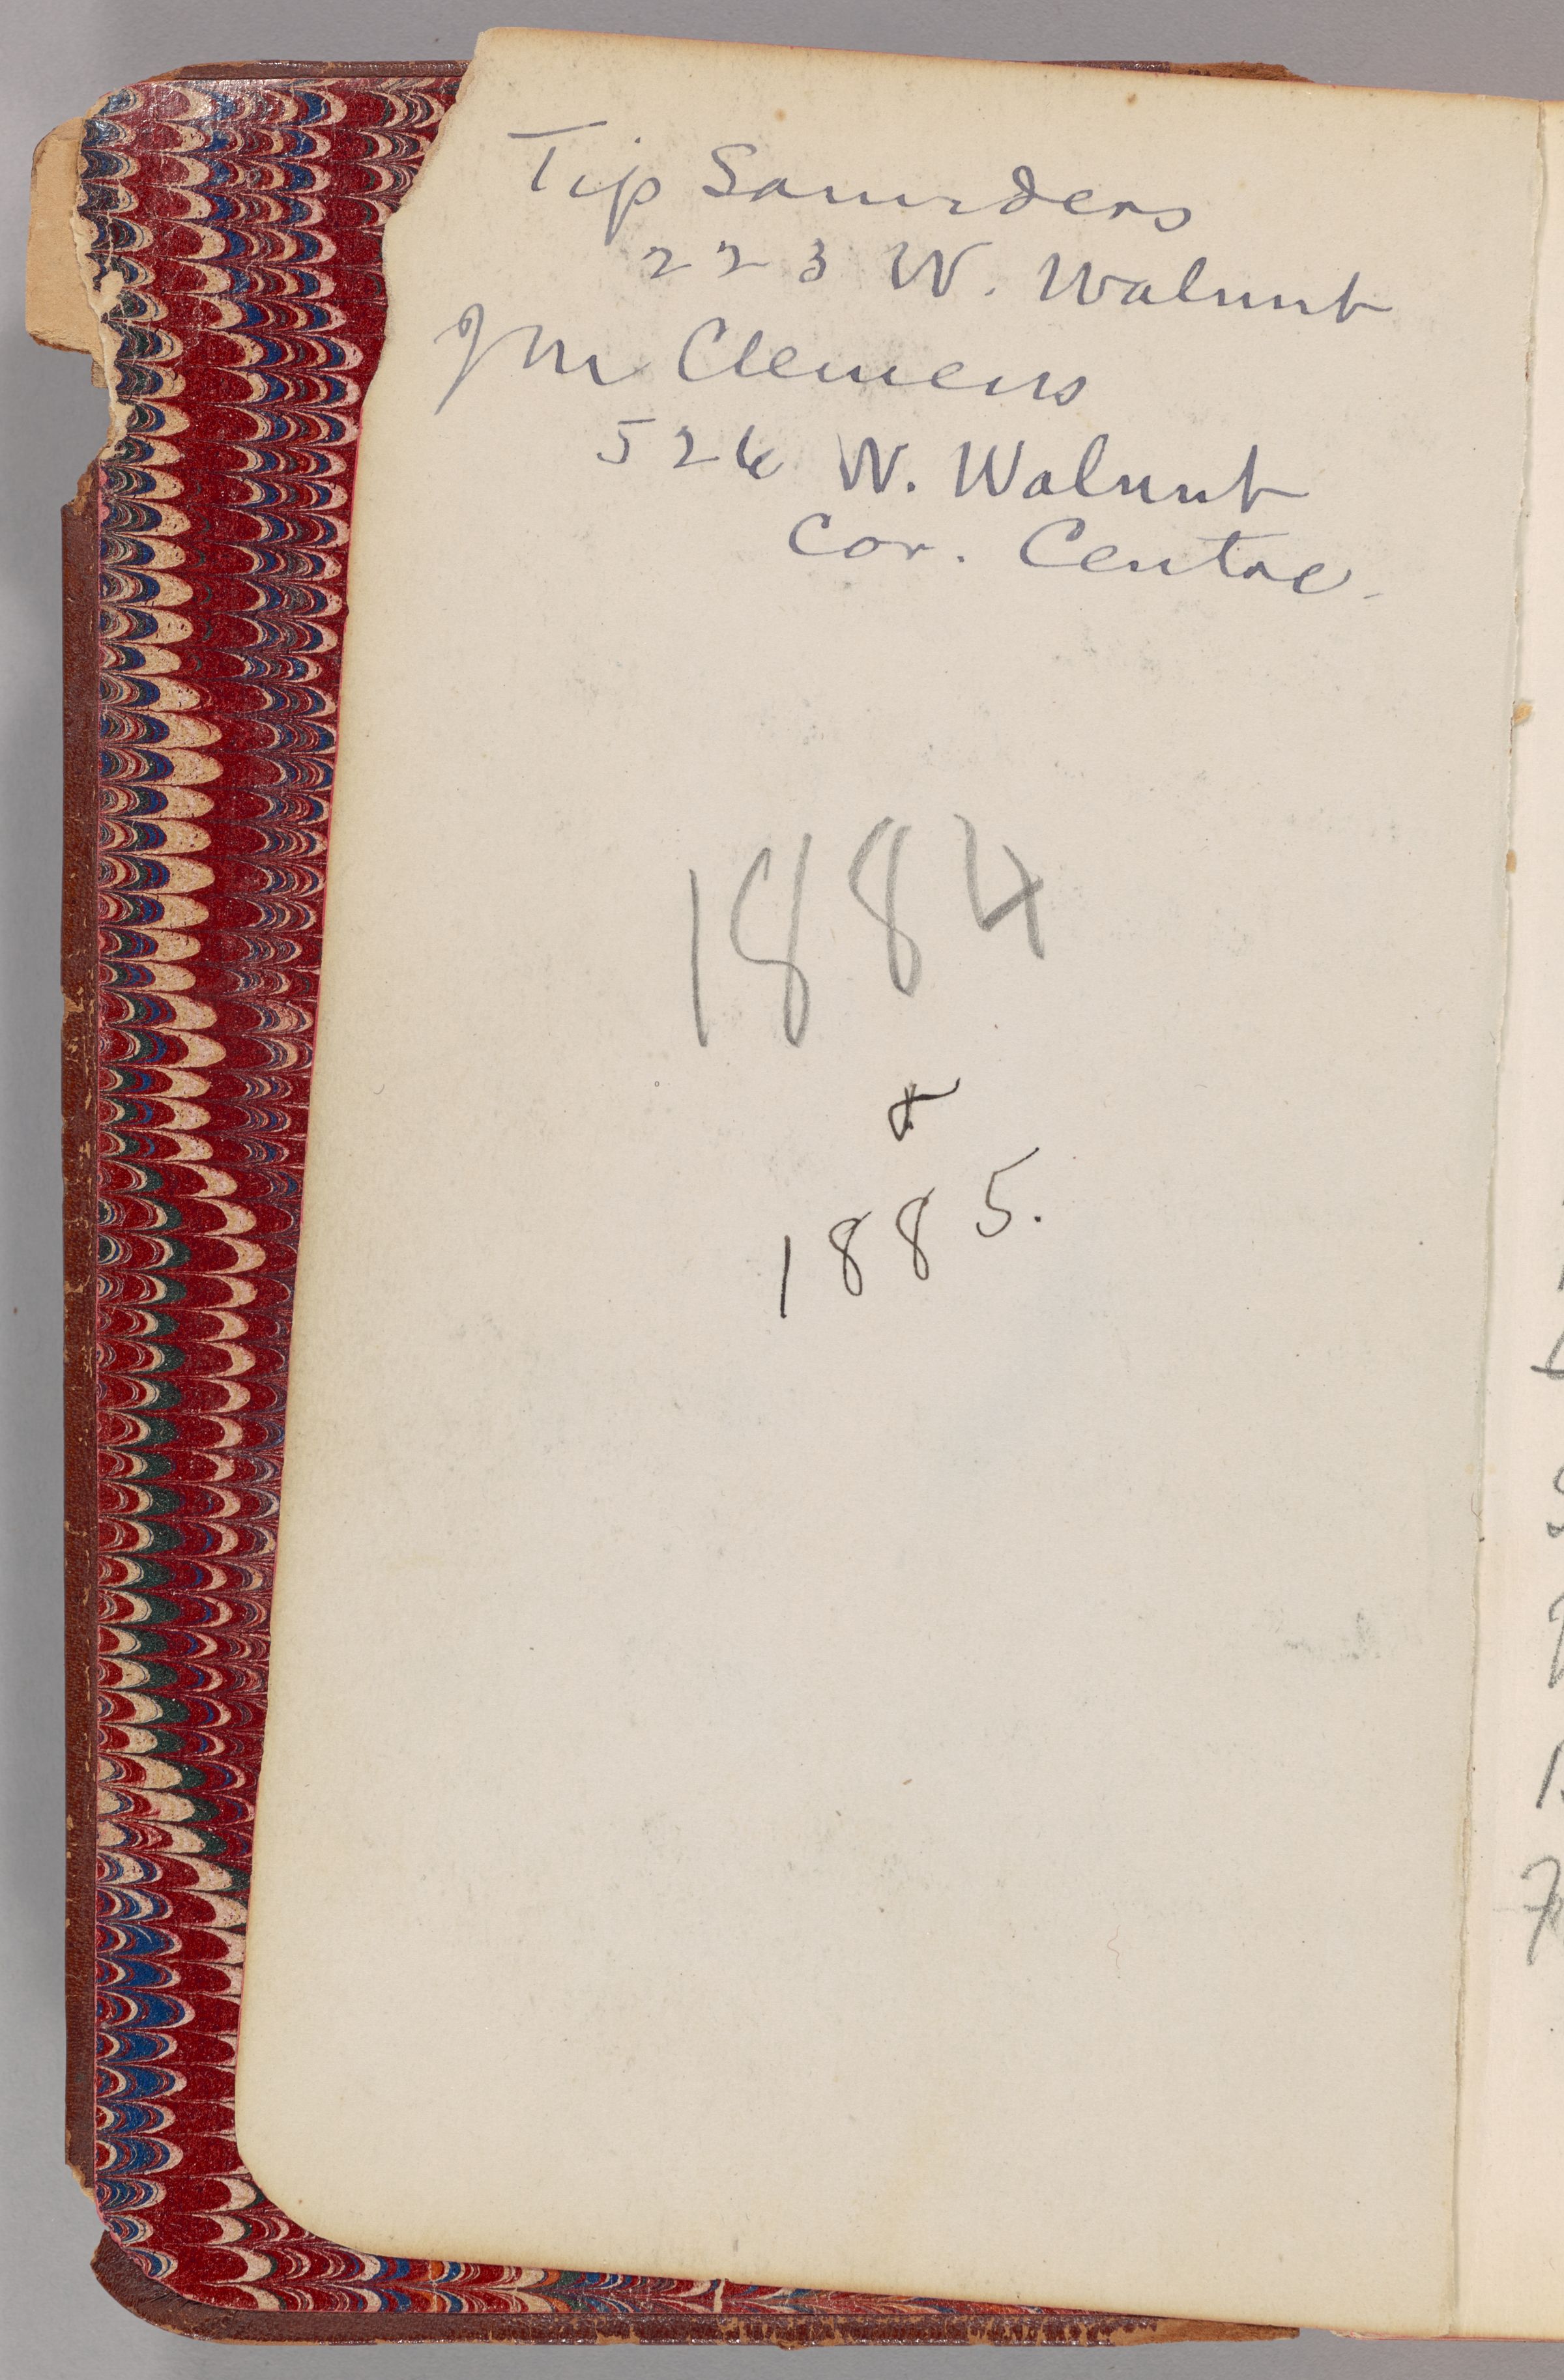 Tip Saunders
223 W. Walnut
Clemens
526 W. Walnut
Cor. Centre.
1884
&
1885.